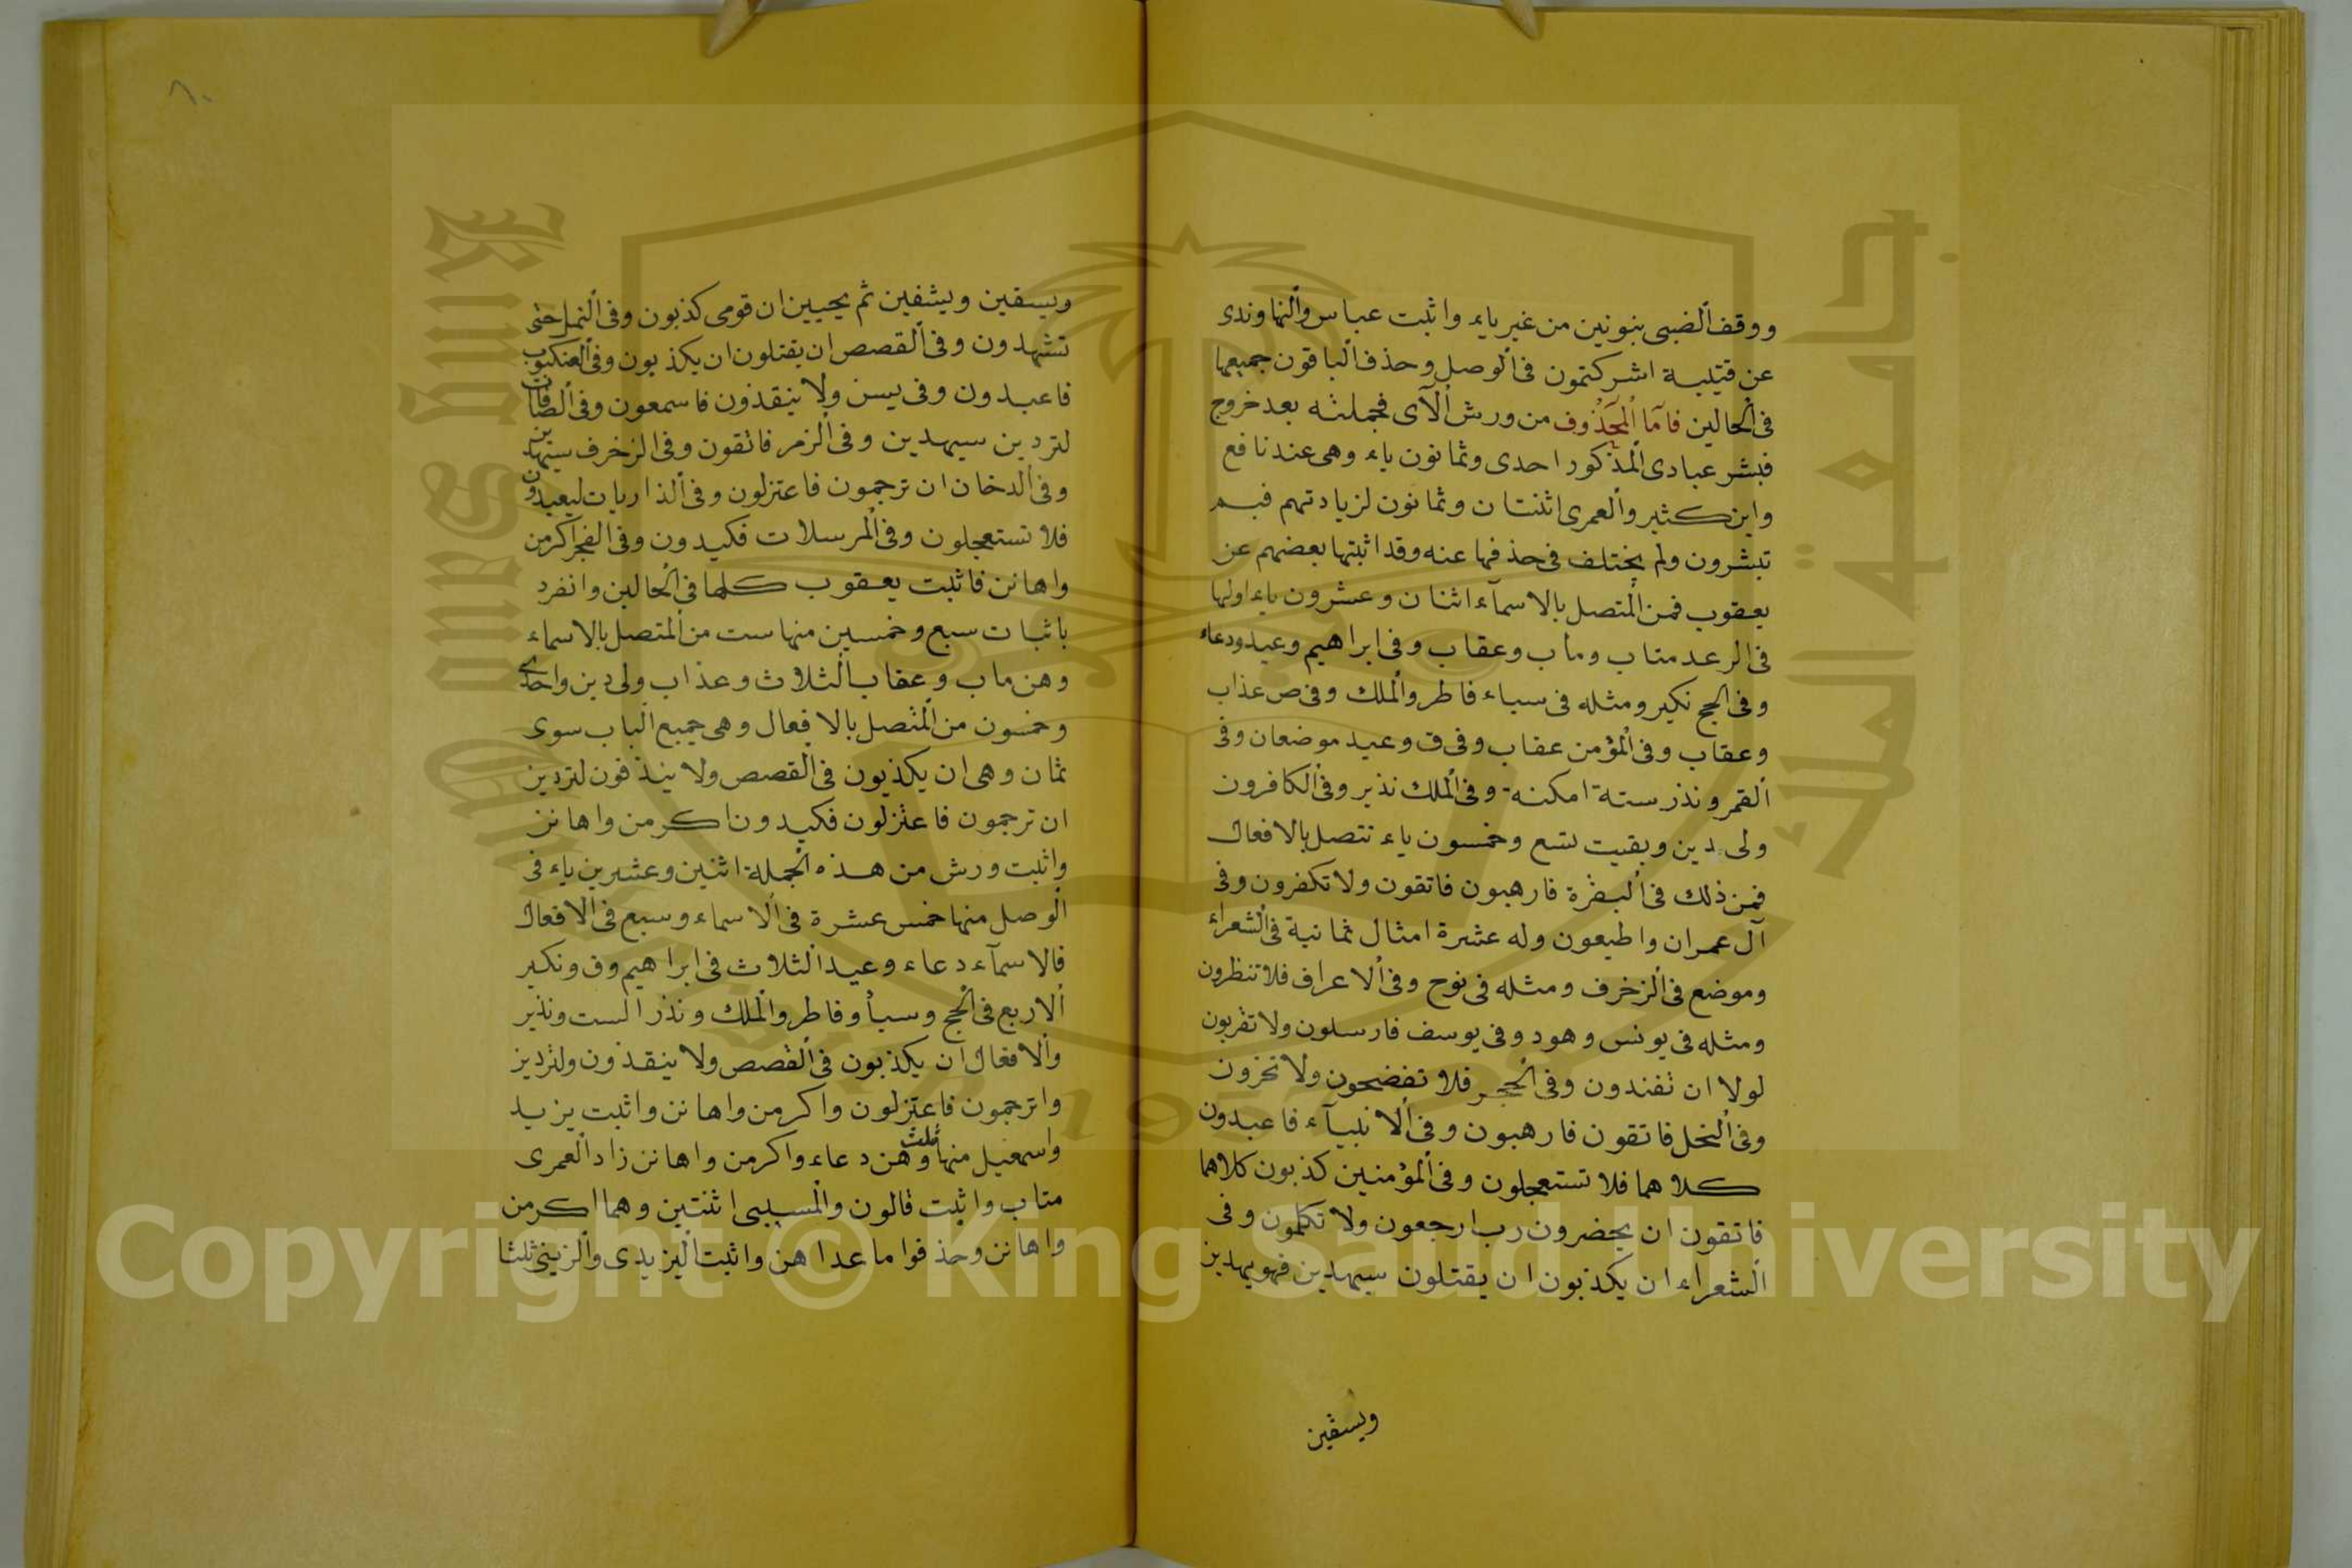 ووقف الضبى بنونين من غير ياء واثبت عباس والنهاوندى
عن قتيبة اشركتمون فى الوصل وحذف الباقون جميعها
فى الحالين فامّا المحذوف من ورش الآى فجملته بعد خروج
فبشر عبادى المذكور احدى وثمانون ياء وهى عند نافع
وابن كثير والعمرى اثنتان وثمانون لزيادتهم فبم
تبشرون ولم يختلف فى حذفها عنه وقد اثبتها بعضهم عن
يعقوب فمن المتصل بالاسمآء اثنان وعشرون ياء اولها
فى الرعد متاب ومأب وعقاب وفى ابراهيم وعيد ودعاء
وفى الحج نكير ومثله فى سباء فاطر والملك وفى ص عذاب
وعقاب وفى المؤمن عقاب وفى ق وعيد موضعان وفى
القمر ونذر ستة امكنة وفى الملك نذير وفى الكافرون
ولى دين وبقيت تسع وخمسون ياء تتصل بالافعال
فمن ذلك فى البقرة فارهبون فاتقون ولا تكفرون وفى
آل عمران واطيعون وله عشرة امثال ثمانية فى الشعراء
وموضع فى الزخرف ومثله فى نوح وفى الاعراف فلا تنظرون
ومثله فى يونس وهود وفى يوسف فارسلون ولا تقربون
لولا ان تفندون وفى الحجر فلا تفضحون ولا تخزون
وفى النحل فاتقون فارهبون وفى الانبيآء فاعبدون
كلاهما فلا تستعجلون وفى المؤمنين كذبون كلاهما
فاتقون ان يحضرون رب ارجعون ولا تكلمون وفى
الشعراء ان يكذبون ان يقتلون سيهدين فهو يهدين
ويسقين
٨٠
ويسقين ويشفين ثم يحيين ان قومى كذبون وفى النمل حتى
تشهدون وفى القصص ان يقتلون ان يكذبون وفى العنكبوت
فاعبدون وفى يسن ولا ينقذون فاسمعون وفى الصافات
لتردين سيهدين وفى الزمر فاتقون وفى الزخرف سيهدين
وفى الدخان ان ترجمون فاعتزلون وفى الذاريات ليعبدون
فلا تستعجلون وفى المرسلات فكيدون وفى الفجر اكرمن
واهانن فاثبت يعقوب كلها فى الحالين وانفرد
باثبات سبع وخمسين منها ست من المتصل بالاسماء
وهن ماب وعقاب الثلاث وعذاب ولى دين واحدى
وخمسون من المتصل بالافعال وهى جميع الباب سوى
ثمان وهى ان يكذبون فى القصص ولا ينذقون لتردين
ان ترجمون فاعتزلون فكيدون اكرمن واهانن
واثبت ورش من هذه الجملة اثنين وعشرين ياء فى
الوصل منها خمس عشرة فى الاسماء وسبع فى الافعال
فالاسمآء دعاء وعيد الثلاث فى ابراهيم وق ونكير
الاربع فى الحج وسبأ وفاطر والملك ونذر الست ونذير
والافعال ان يكذبون فى القصص ولا ينقذون ولتردين
وا ترجمون فاعتزلون واكرمن واهانن واثبت يزيد
واسمعيل منها ثلث وهن دعاء واكرمن واهانن زاد العمرى
متاب واثبت قالون والمسيبى اثنتين وهما اكرمن
واهانن وحذفوا ما عداهن واثبت اليزيدى والزينبى ثلثا
جامعة الملك
King Saud
195
Copyright © King Saud University